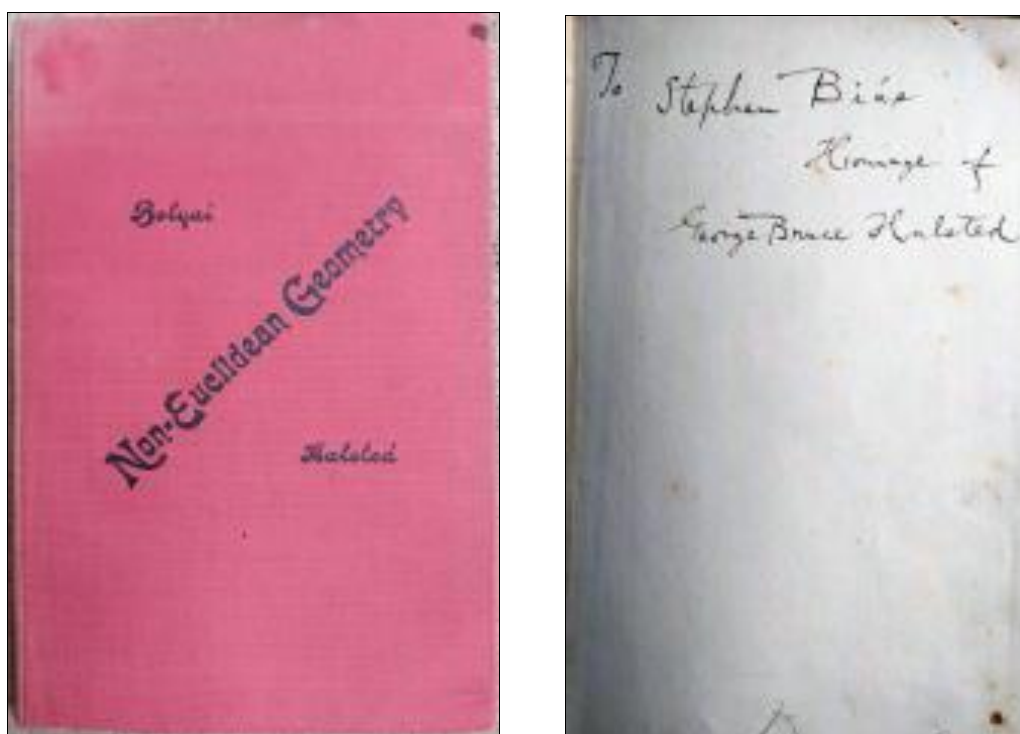 Bolyai
Non-Euclidean Geometry
Halsted
To Stephen Biás
Homage of
George Bruce Halsted